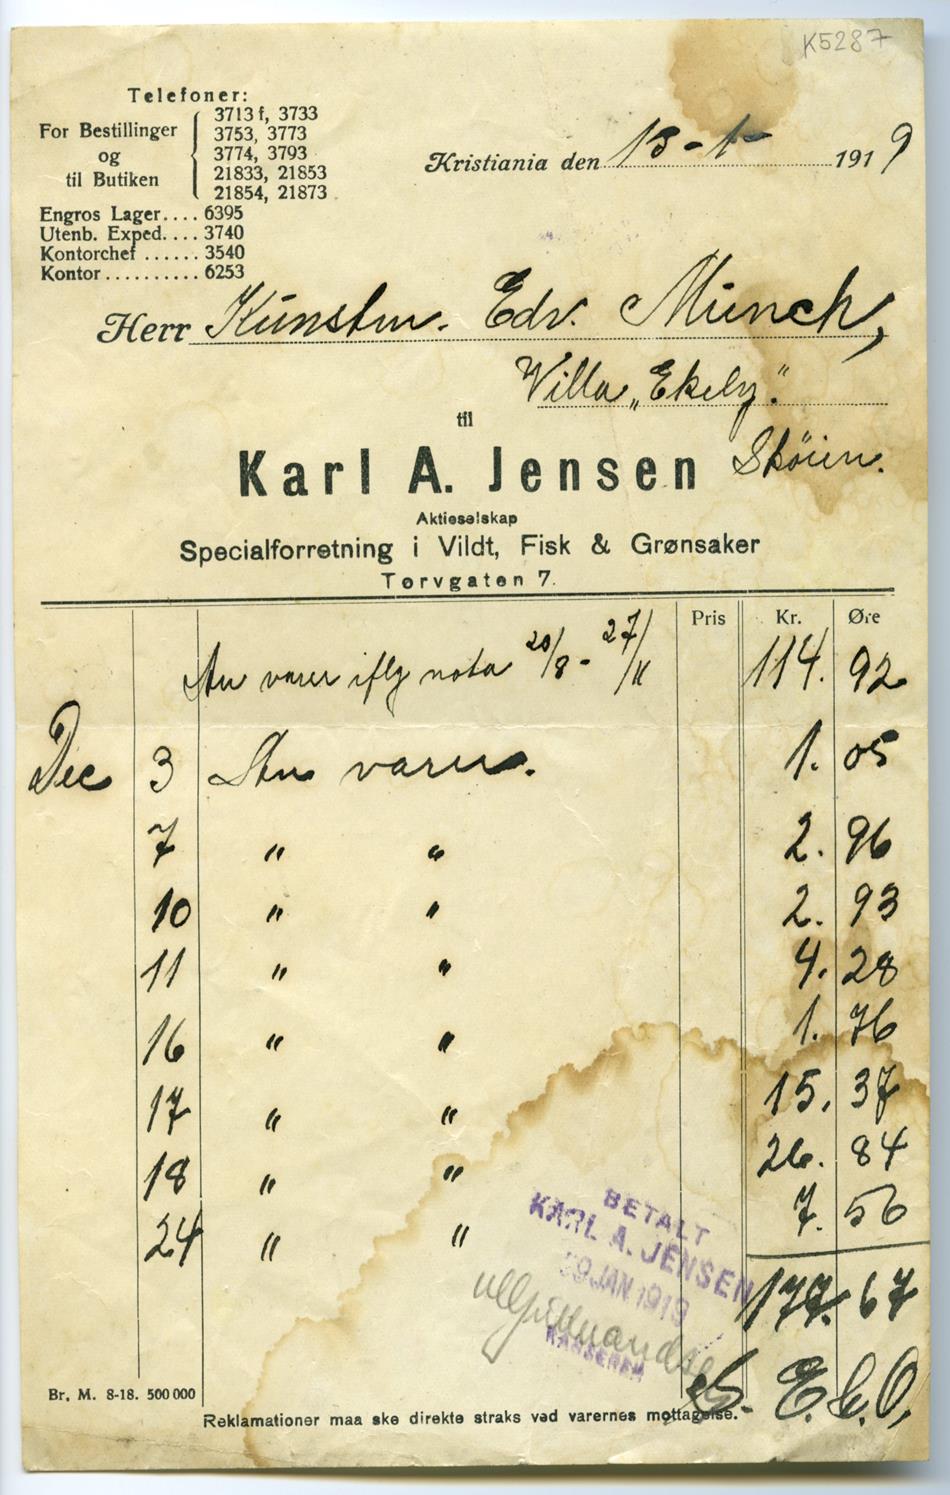 K5287
Telefoner:
For Bestillinger og til Butiken
3713 f, 3733
3753, 3773
3774, 3793
21833, 21853
21854, 21873
Engros Lager.... 6395
Utenb. Exped.... 3740
Kontorchef ...... 3540
Kontor.......... 6253
Kristiania den 13-1- 1919
Herr Kunstm. Edv. Munch,
Villa „Ekely."
til
Skøien.
Karl A. Jensen
Aktieselskap
Specialforretning i Vildt, Fisk & Grønsaker
Torvgaten 7.
Pris Kr. Øre
An varer iflg nota 20/8 - 27/11 114. 92
Dec 3 An varer. 1. 05
7 " " 2. 96
10 " " 2. 93
11 " " 4. 28
16 " " 1. 76
17 " " 15. 37
18 " " 26. 84
24 " " 7. 56
177. 67
BETALT
KARL A. JENSEN
JAN 1919
KASSEREN
S. E. & O.
Br. M. 8-18. 500 000
Reklamationer maa ske direkte straks ved varernes mottagelse.